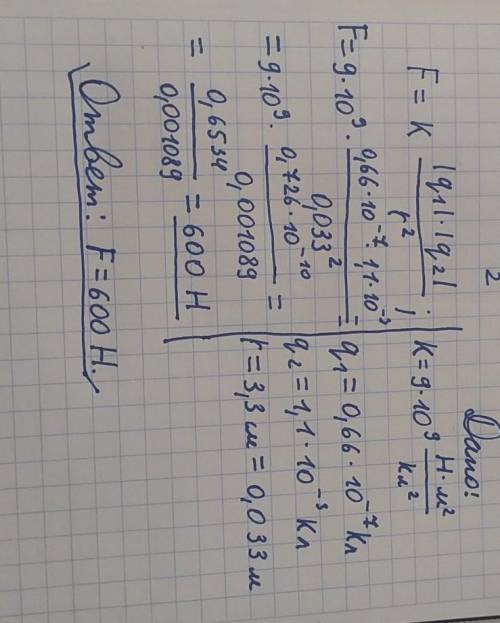 2
Дано:
K = 9·10⁹ Н·м²/Кл²
q₁ = 0,66·10⁻⁷ Кл
q₂ = 1,1·10⁻³ Кл
r = 3,3 м = 0,033 м
F = K |q₁|·|q₂| / r² ;
F = 9·10⁹ · 0,66·10⁻⁷·1,1·10⁻³ / 0,033² =
= 9·10⁹ · 0,726·10⁻¹⁰ / 0,001089 =
= 0,6534 / 0,001089 = 600 Н
Ответ: F = 600 Н.